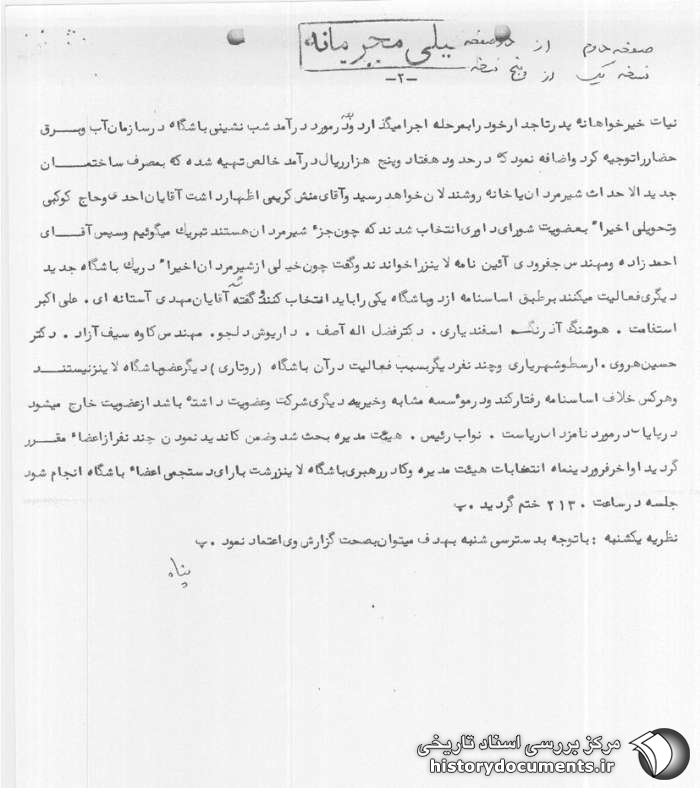 صفحه دوم از دو صفحه
خیلی محرمانه
نسخه یک از پنج نسخه
-۲-
نیات خیرخواهانه پدر تاجدار خود را بمرحله اجرا میگذارد و در مورد درآمد شب نشینی باشگاه در سازمان آب و برق
حضار را توجیه کرد و اضافه نمود که در حدود هفتاد و پنج هزار ریال درآمد خالص تهیه شده که بمصرف ساختمان
جدید الاحداث شیر مردان یا خانه روشندلان خواهد رسید و آقای منش کریمی اظهار داشت آقایان احدی و حاج کوکبی
و تحویلی اخیراً بعضویت شورای داوری انتخاب شدند که چون جزء شیر مردان هستند تبریك میگوئیم و سپس آقای
احمدزاده و مهندس جفرودی آئین نامه لاینز را خواندند و گفت چون خیلی از شیر مردان اخیراً در یك باشگاه جدید
دیگری فعالیت میکنند بر طبق اساسنامه از دو باشگاه یکی را باید انتخاب کنند و گفته شد آقایان مهدی آستانه ای . علی اکبر
استقامت . هوشنگ آذرنگ اسفندیاری . دکتر فضل اله آصف . داریوش دلجو . مهندس کاوه سیف آزاد . دکتر
حسین هروی . ارسطو شهریاری و چند نفر دیگر بسبب فعالیت در آن باشگاه (روتاری) دیگر عضو باشگاه لاینز نیستند
و هر کس خلاف اساسنامه رفتار کند و در موسسه مشابه و خیریه دیگری شرکت و عضویت داشته باشد از عضویت خارج میشود
در پایان در مورد نامزدان ریاست . نواب رئیس . هیئت مدیره بحث شد و ضمن کاندید نمودن چند نفر از اعضاء مقرر
گردید اواخر فروردینماه انتخابات هیئت مدیره و کادر رهبری باشگاه لاینز رشت با رای دستجمعی اعضاء باشگاه انجام شود
جلسه در ساعت ۲۱۳۰ ختم گردید .پ
نظریه یکشنبه : با توجه بدسترسی شنبه بهدف میتوان بصحت گزارش وی اعتماد نمود .پ
پناه
مرکز بررسی اسناد تاریخی
historydocuments.ir